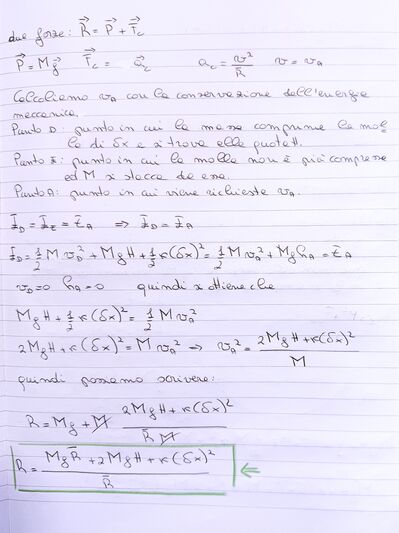 due forze: R⃗ = P⃗ + F⃗c
P⃗ = Mg⃗   F⃗c = a⃗c   ac = v²/R̄   v = vA
Calcoliamo vA con la conservazione dell'energia
meccanica.
Punto D: punto in cui la massa comprime la mol
la di δx e si trova alla quota H.
Punto E: punto in cui la molla non è più compressa
ed M si stacca da essa.
Punto A: punto in cui viene richiesta vA.
ED = EE = EA ⇒ ED = EA
ED = 1/2 M vD² + MgH + 1/2 k(δx)² = 1/2 M vA² + MghA = EA
vD=0 hA=0 quindi si ottiene che
MgH + 1/2 k(δx)² = 1/2 M vA²
2MgH + k(δx)² = M vA² ⇒ vA² = (2MgH + k(δx)²)/M
quindi possiamo scrivere:
R = Mg + M (2MgH + k(δx)²)/(R̄ M)
R = (MgR̄ + 2MgH + k(δx)²)/R̄ ⇐